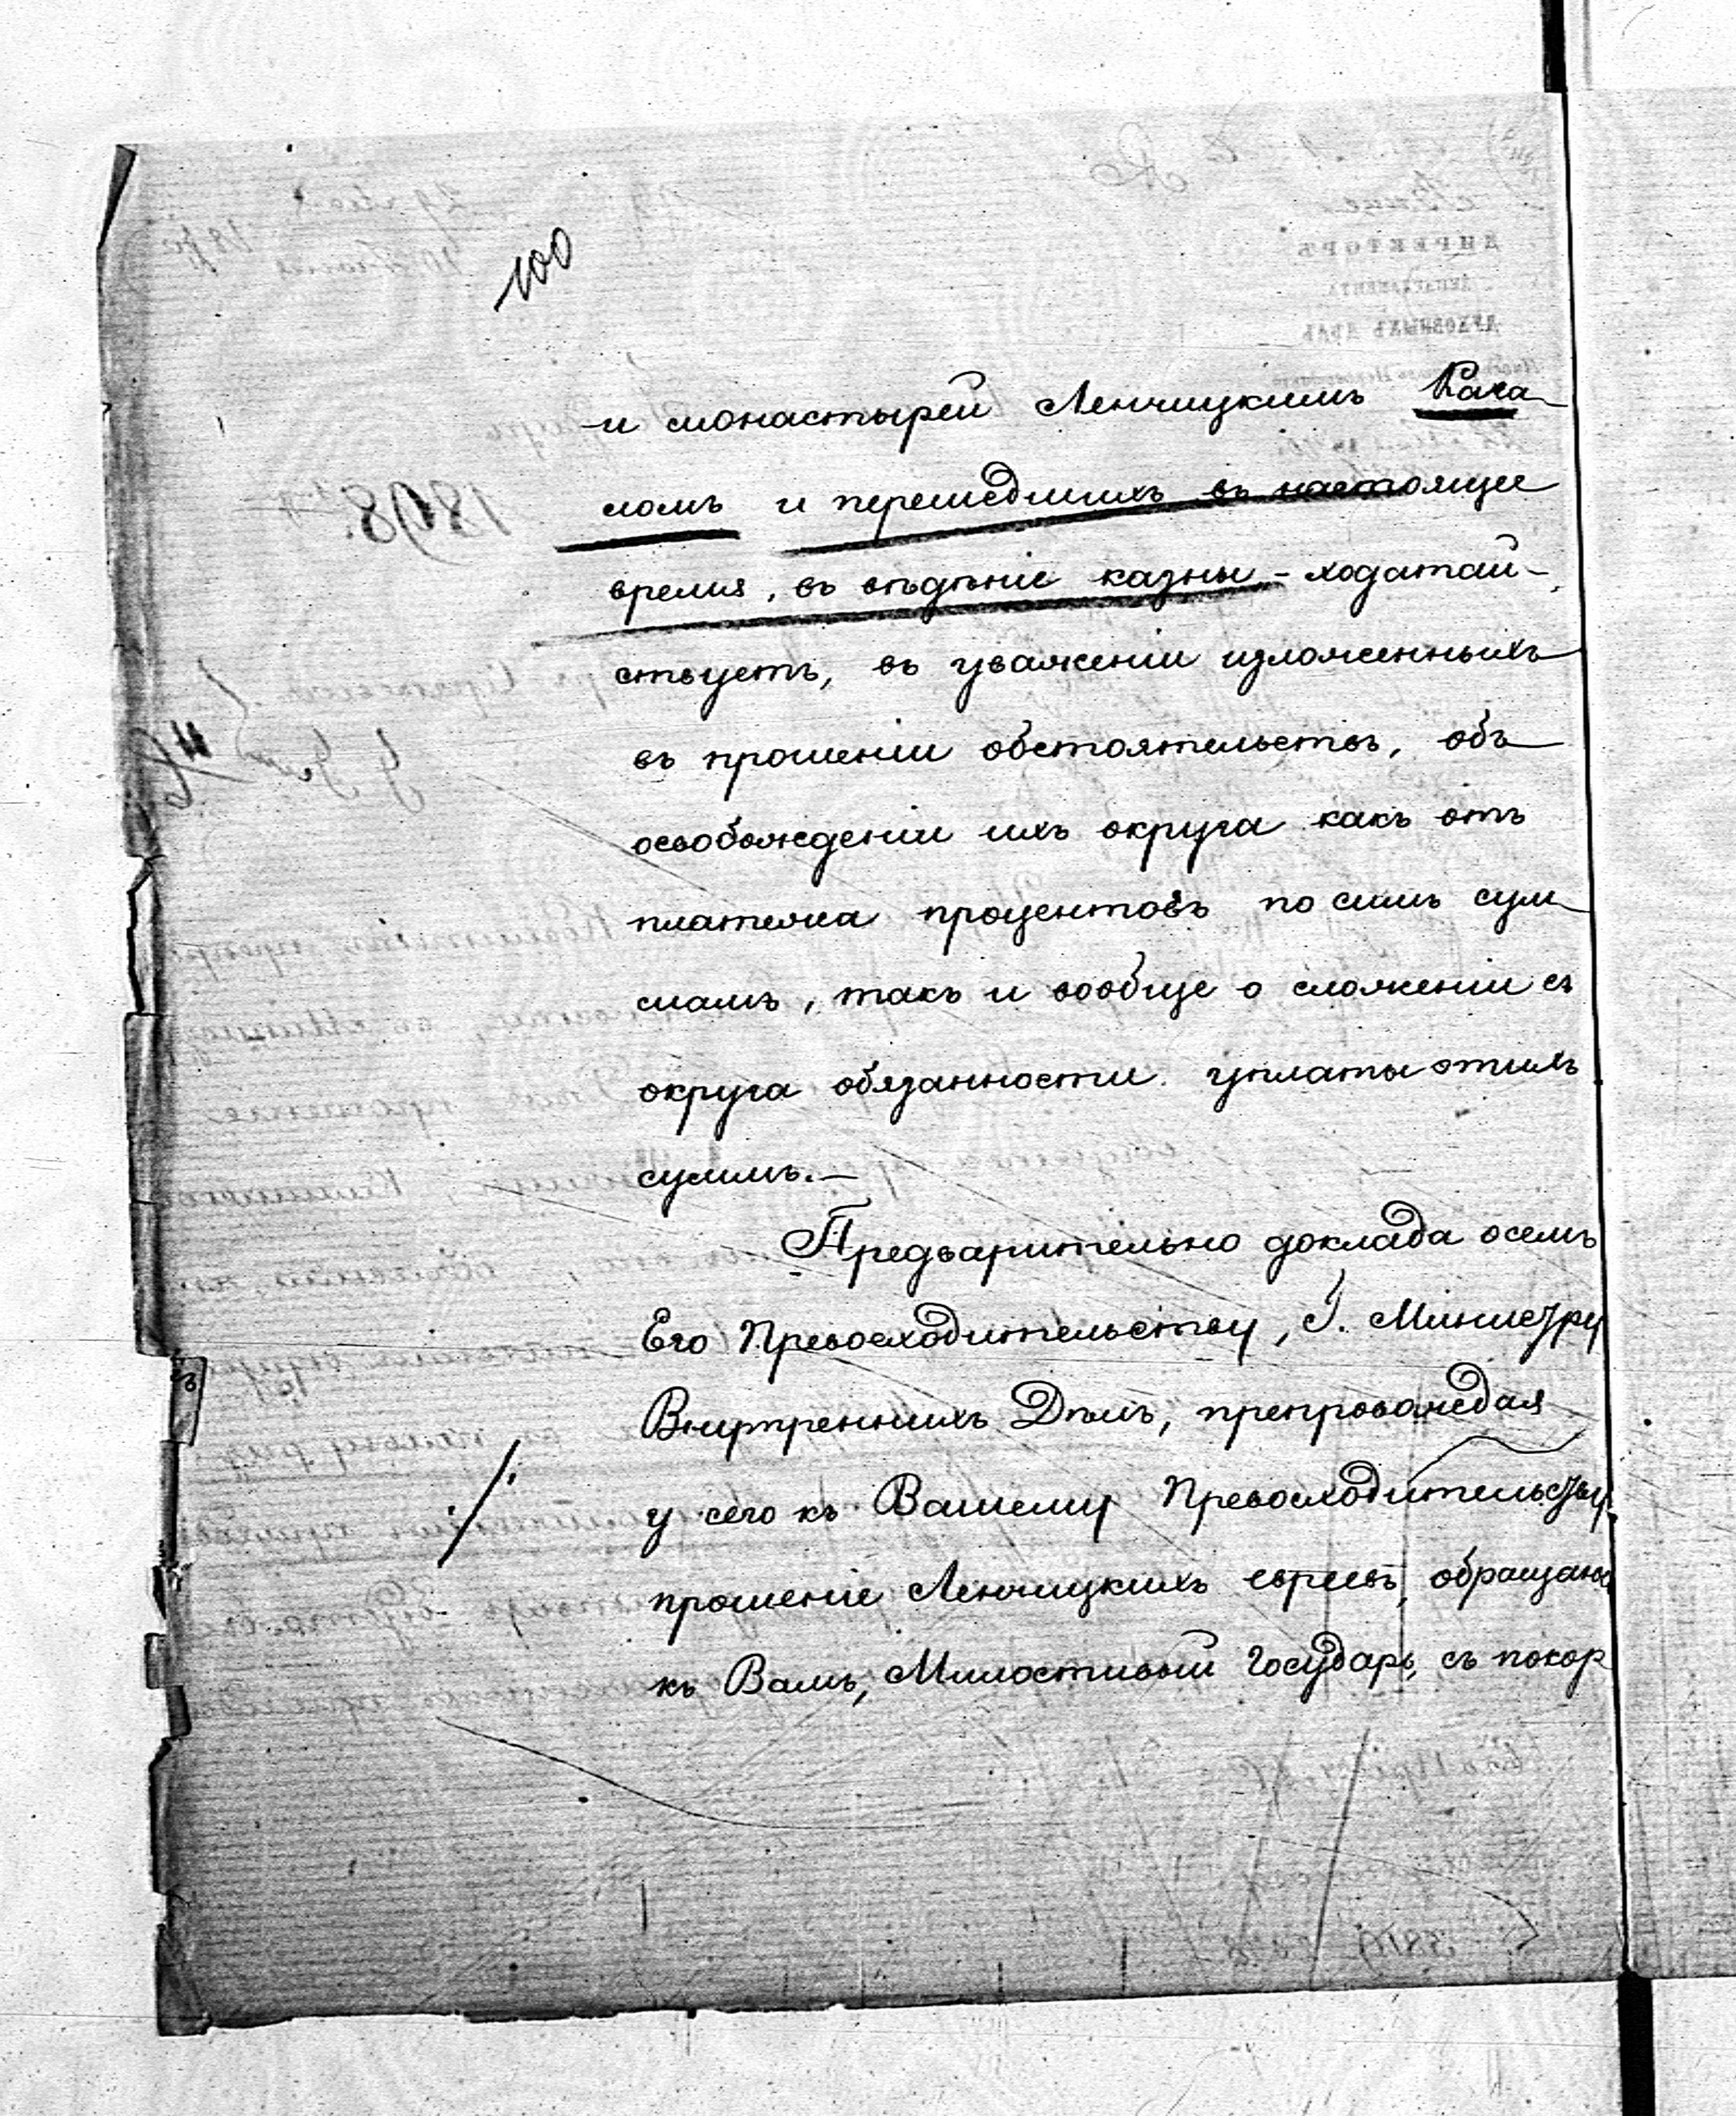 100
и монастырей Ленчицкимъ Кага-
ломъ и перешедшихъ въ настоящее
время, въ вѣдѣніе казны - ходатай-
ствуетъ, въ уваженіи изложенныхъ
въ прошеніи обстоятельствъ, объ
освобожденіи ихъ округа какъ отъ
платежа процентовъ по симъ сум-
мамъ, такъ и вообще о сложеніи съ
округа обязанности уплаты этихъ
суммъ.—
Предварительно доклада о семъ
Его Превосходительству, Г. Министру
Внутреннихъ Дѣлъ, препровождая
у сего къ Вашему Превосходительству
прошеніе Ленчицкихъ евреевъ, обращаюсь
къ Вамъ, Милостивый Государь, съ покор